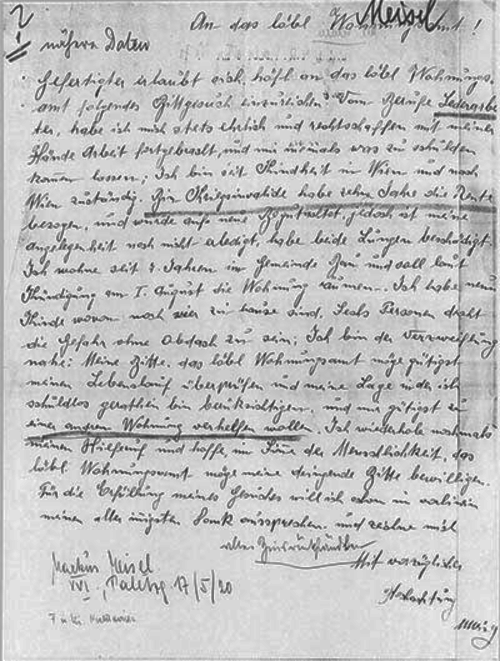 An das löbl. Wohnungsamt!
Meisel
nähere Daten
Gefertigter erlaubt sich, höfl. an das löbl. Wohnungs-
amt folgendes Bittgesuch einzureichen: Vom Berufe Lederarbei
ter, habe ich mich stets ehrlich und rechtschaffen mit meiner
Hände Arbeit fortgebracht, und mir niemals was zu schulden
kommen lassen; Ich bin seit Kindheit in Wien und nach
Wien zuständig. Bin Kriegsinvalide habe zehn Jahre die Rente
bezogen, und wurde aufs neue jedoch ist meine
angelegenheit noch nicht erledigt, habe beide Lungen beschädigt
Ich wohne seit 7 Jahren im Gemeinde Bau und soll laut
Kündigung am I. August die Wohnung räumen. Ich habe neun
Kinde wovon noch vier zu hause sind. Sechs Personen droht
die Gefahr ohne Obdach zu sein; Ich bin der Verzweiflung
nahe: Meine Bitte, das löbl Wohnungsamt möge gütigst
meinen Lebenslauf überprüfen und meine Lage in der ich
schuldlos gerathen bin berücksichtigen, und mir gütigst zu
einer andren Wohnung verhelfen wollen. Ich wiederhole nochmals
meinen Hilferuf und hoffe, im Sinne der Menschlichkeit, das
löbl Wohnungsamt möge meine dringende Bitte bewilligen.
Für die Erfüllung meines Gesuches will ich schon im vorhinein
meinen aller innigsten Dank aussprechen, und zeichne mit
alter Zinsrückständler
Mit vorzüglicher
Hochachtung
Markus Meisel
XVI., 17/5/20